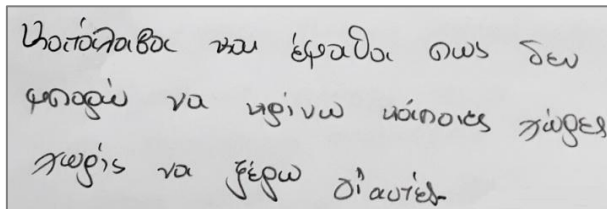 Κατάλαβα και έμαθα πως δεν
μπορώ να κρίνω κάποιες χώρες
χωρίς να ξέρω γι' αυτές.